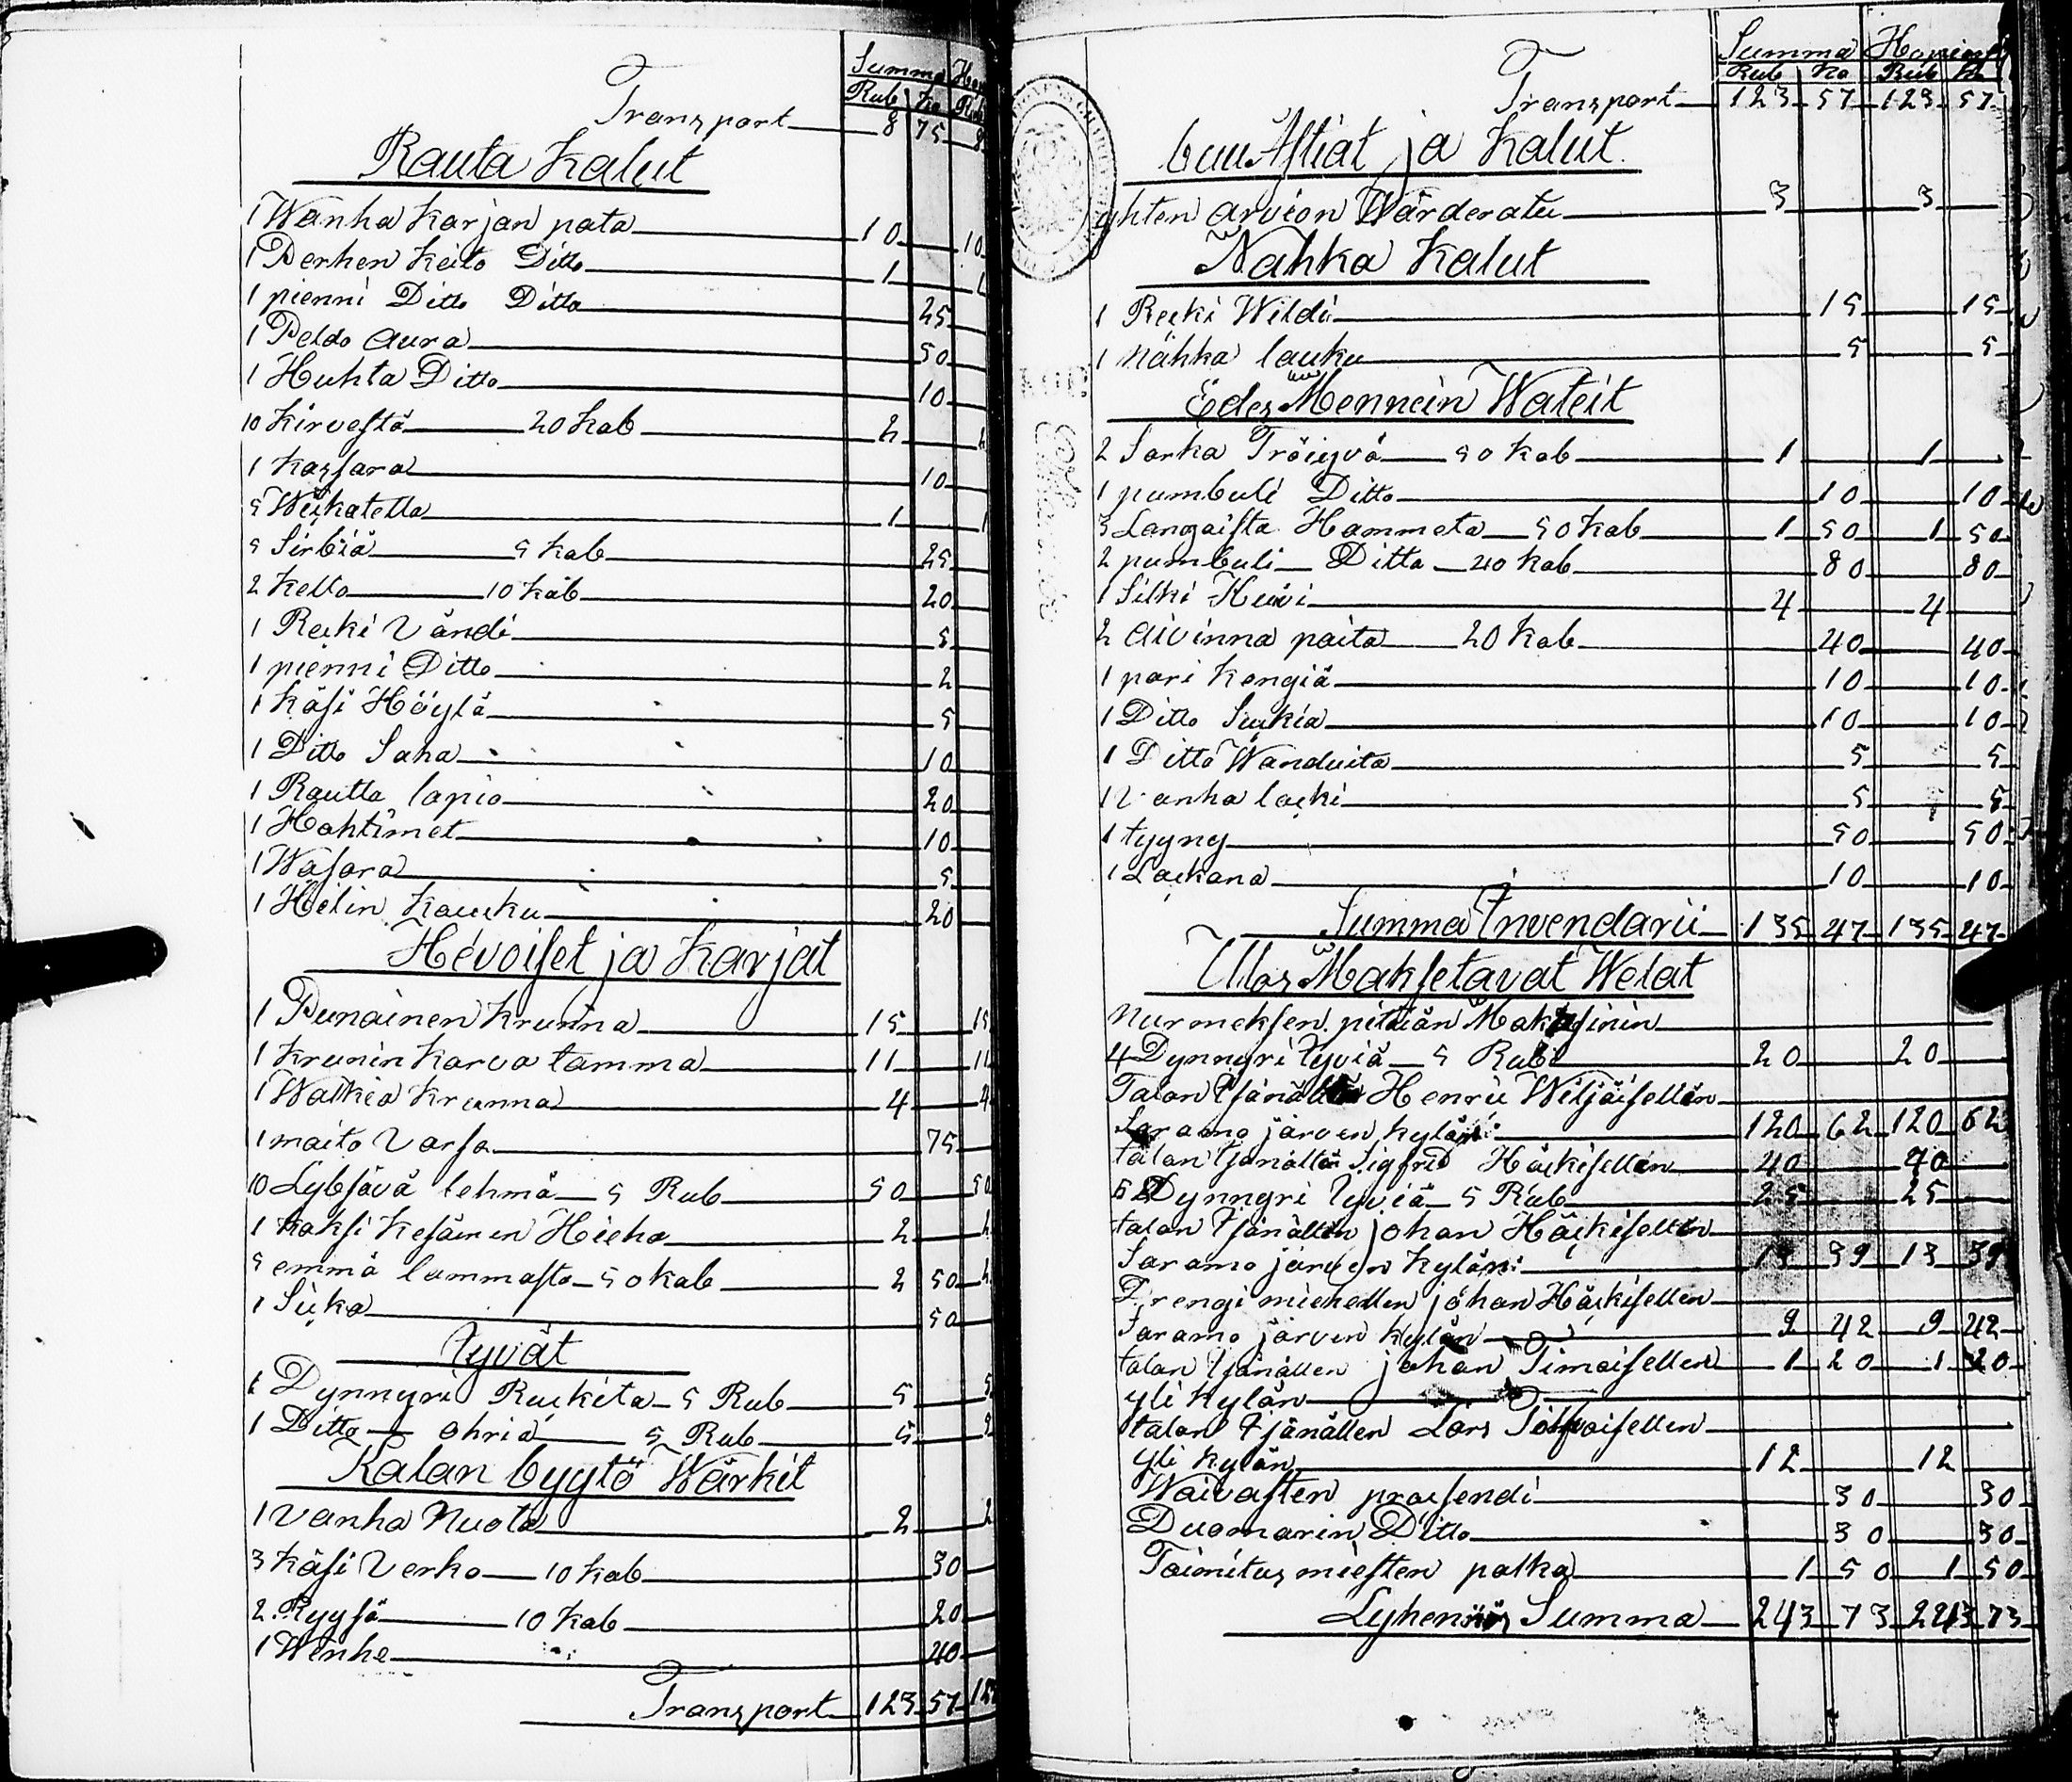 Summa Hop
Rub Ko Rub
Transport 8 75 8
Rauta Kalut
1 Wanha Karjan pata 10 10
1 Perhen Keito Ditto 1 1
1 pienni Ditto Ditto 25
1 Peldo Aura 50
1 Huhta Ditto 10
10 Kirvestä 20 Kab 2 2
1 Kassara 10
5 Weikatetta 1 1
5 Sirbiä 5 Kab 25
2 Kello 10 Kab 20
1 Reiki Vändi 5
1 pienni Ditto 2
1 Käsi Höylä 5
1 Ditto Saha 10
1 Rautta lapio 20
1 Hohtimet 10
1 Wasara 5
1 Hielin Kousku 20
Hevoiset ja Karjat
1 Punainen Krunna 15 15
1 Krunin Karva tamma 11 11
1 Walkia Krunna 4 4
1 maito Varsa 75
10 Lybsävä lehmä 5 Rub 50 50
1 Kaksi Kesäinen Hieho 2 2
5 emmä lammasta 50 Kab 2 50 2
1 Sika 50
Jyvät
1 Dynnyri Ruikita 5 Rub 5 5
1 Ditto ohria 5 Rub 5 5
Kalan byytö Wärkit
1 Vanha Nuota 2 2
3 Käsi Verko 10 Kab 30
2 Ryysä 10 Kab 20
1 Wenhe 40
Transport 123 57 123
Summa Hopiass
Rub Ko Rub K
Transport 123 57 123 57
buu Astiat ja Kalut
yhten arvion Wärderatu 3 3
Nahka Kalut
1 Reiki Wildi 15 15
1 Nahka lauku 5 5
Edes Mennein Wateit
2 Sarka Tröiyvä 50 Kab 1 1
1 pumbuli Ditto 10 10
3 Langaista Hammeta 50 Kab 1 50 1 50
2 pumbuli Ditto 40 Kab 80 80
1 Silki Huivi 4 4
2 Aivinna paita 20 Kab 40 40
1 pari Kengiä 10 10
1 Ditto Sukia 10 10
1 Ditto Wanduita 5 5
1 Vanha laki 5 5
1 tyyny 50 50
1 Lakana 10 10
Summa Invendarii 135 47 135 47
Ulos Maksetavat Welat
Nurmeksen pitäiän Makasinin
4 Dynnyri Jyviä 5 Rub 20 20
Talan Isänällän Henrii Wiljäisellän
Saramo järven kylän 120 62 120 62
talan Isänällän Sigfrid Häikisellän 40 40
5 Dynnyri Jyviä 5 Rub 25 25
talan Isänällän Johan Häikisellän
Saramo järven Kylän 13 39 13 39
Drengi miehellen johan Häikisellen
Saramo järven Kylän 9 42 9 42
talan Isänällen johan Timoisellen 1 20 1 20
yli Kylän
talan Isänällen Lars
yli Kylän 12 12
Waivasten prosendi 30 30
Duomarin Ditto 30 30
Toimitus miesten palka 1 50 1 50
Summa 243 73 243 73